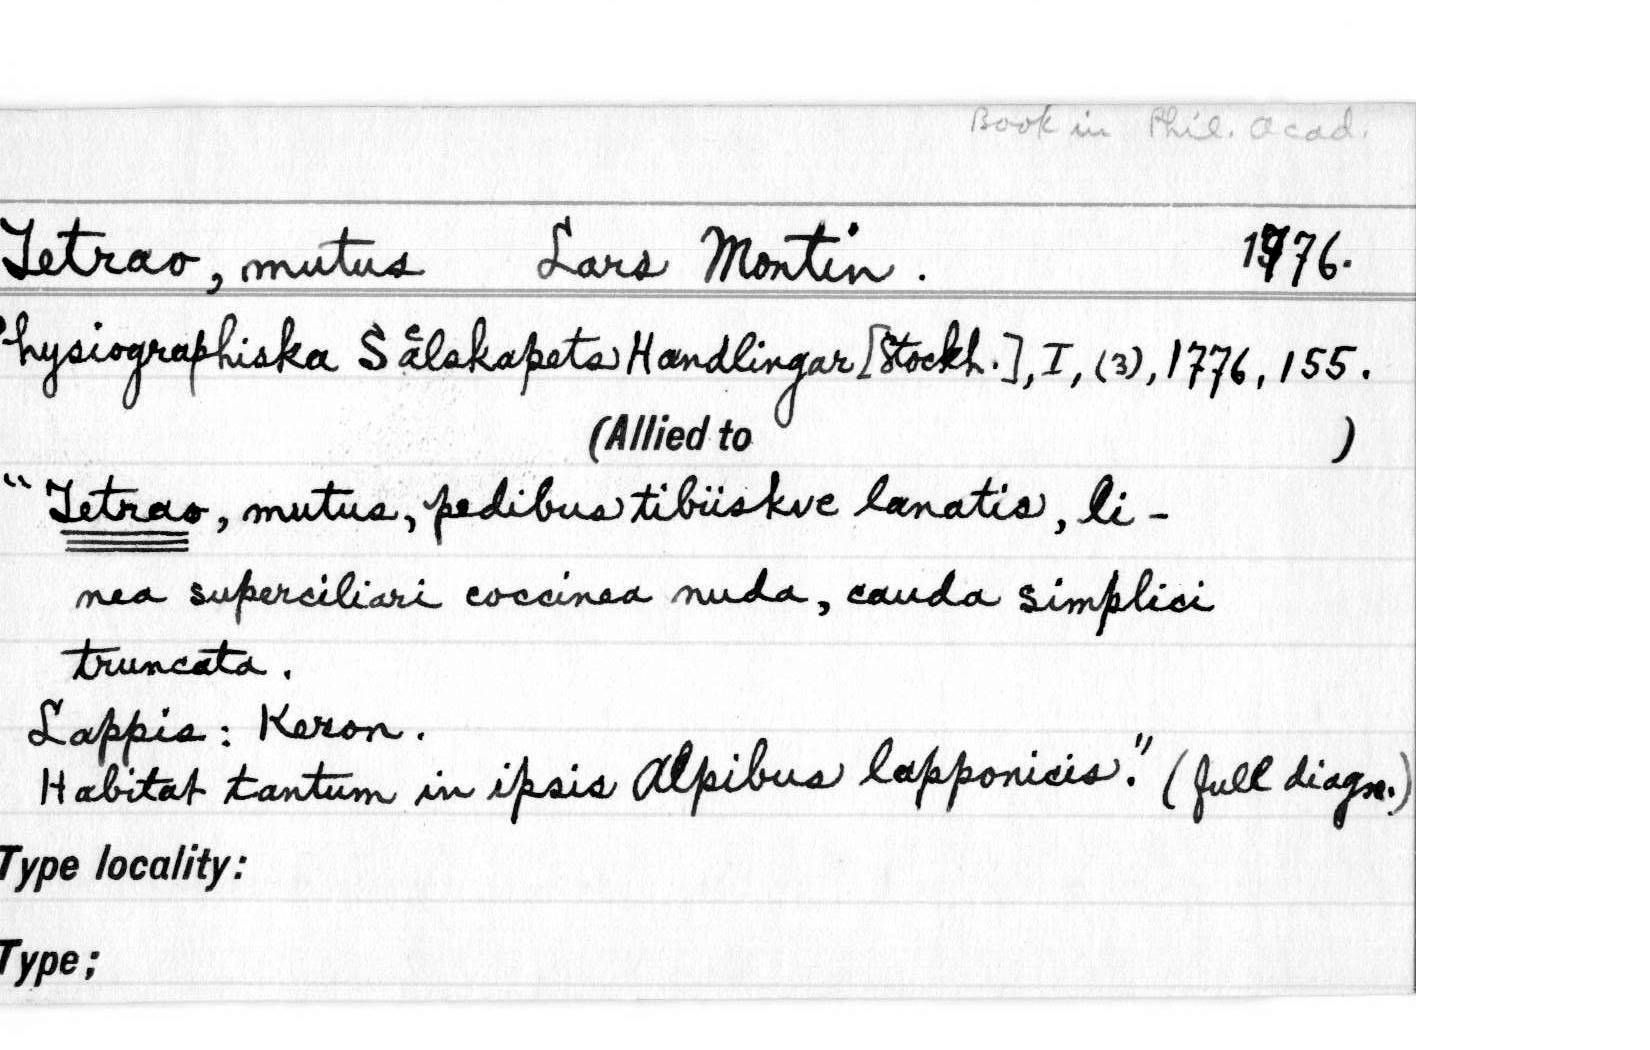 Book in Phil. Acad.
Tetrao, mutus Lars Montin. 1776.
Physiographiska Saͤlskapets Handlingar [Stockh.], I, (3), 1776, 155.
(Allied to )
“Tetrao, mutus, pedibus tibiiskve lanatis, li-
nea superciliari coccinea nuda, cauda simplici
truncata.
Lappis: Keron.
Habitat tantum in ipsis Alpibus lapponicis." (full diagn.)
Type locality:
Type;